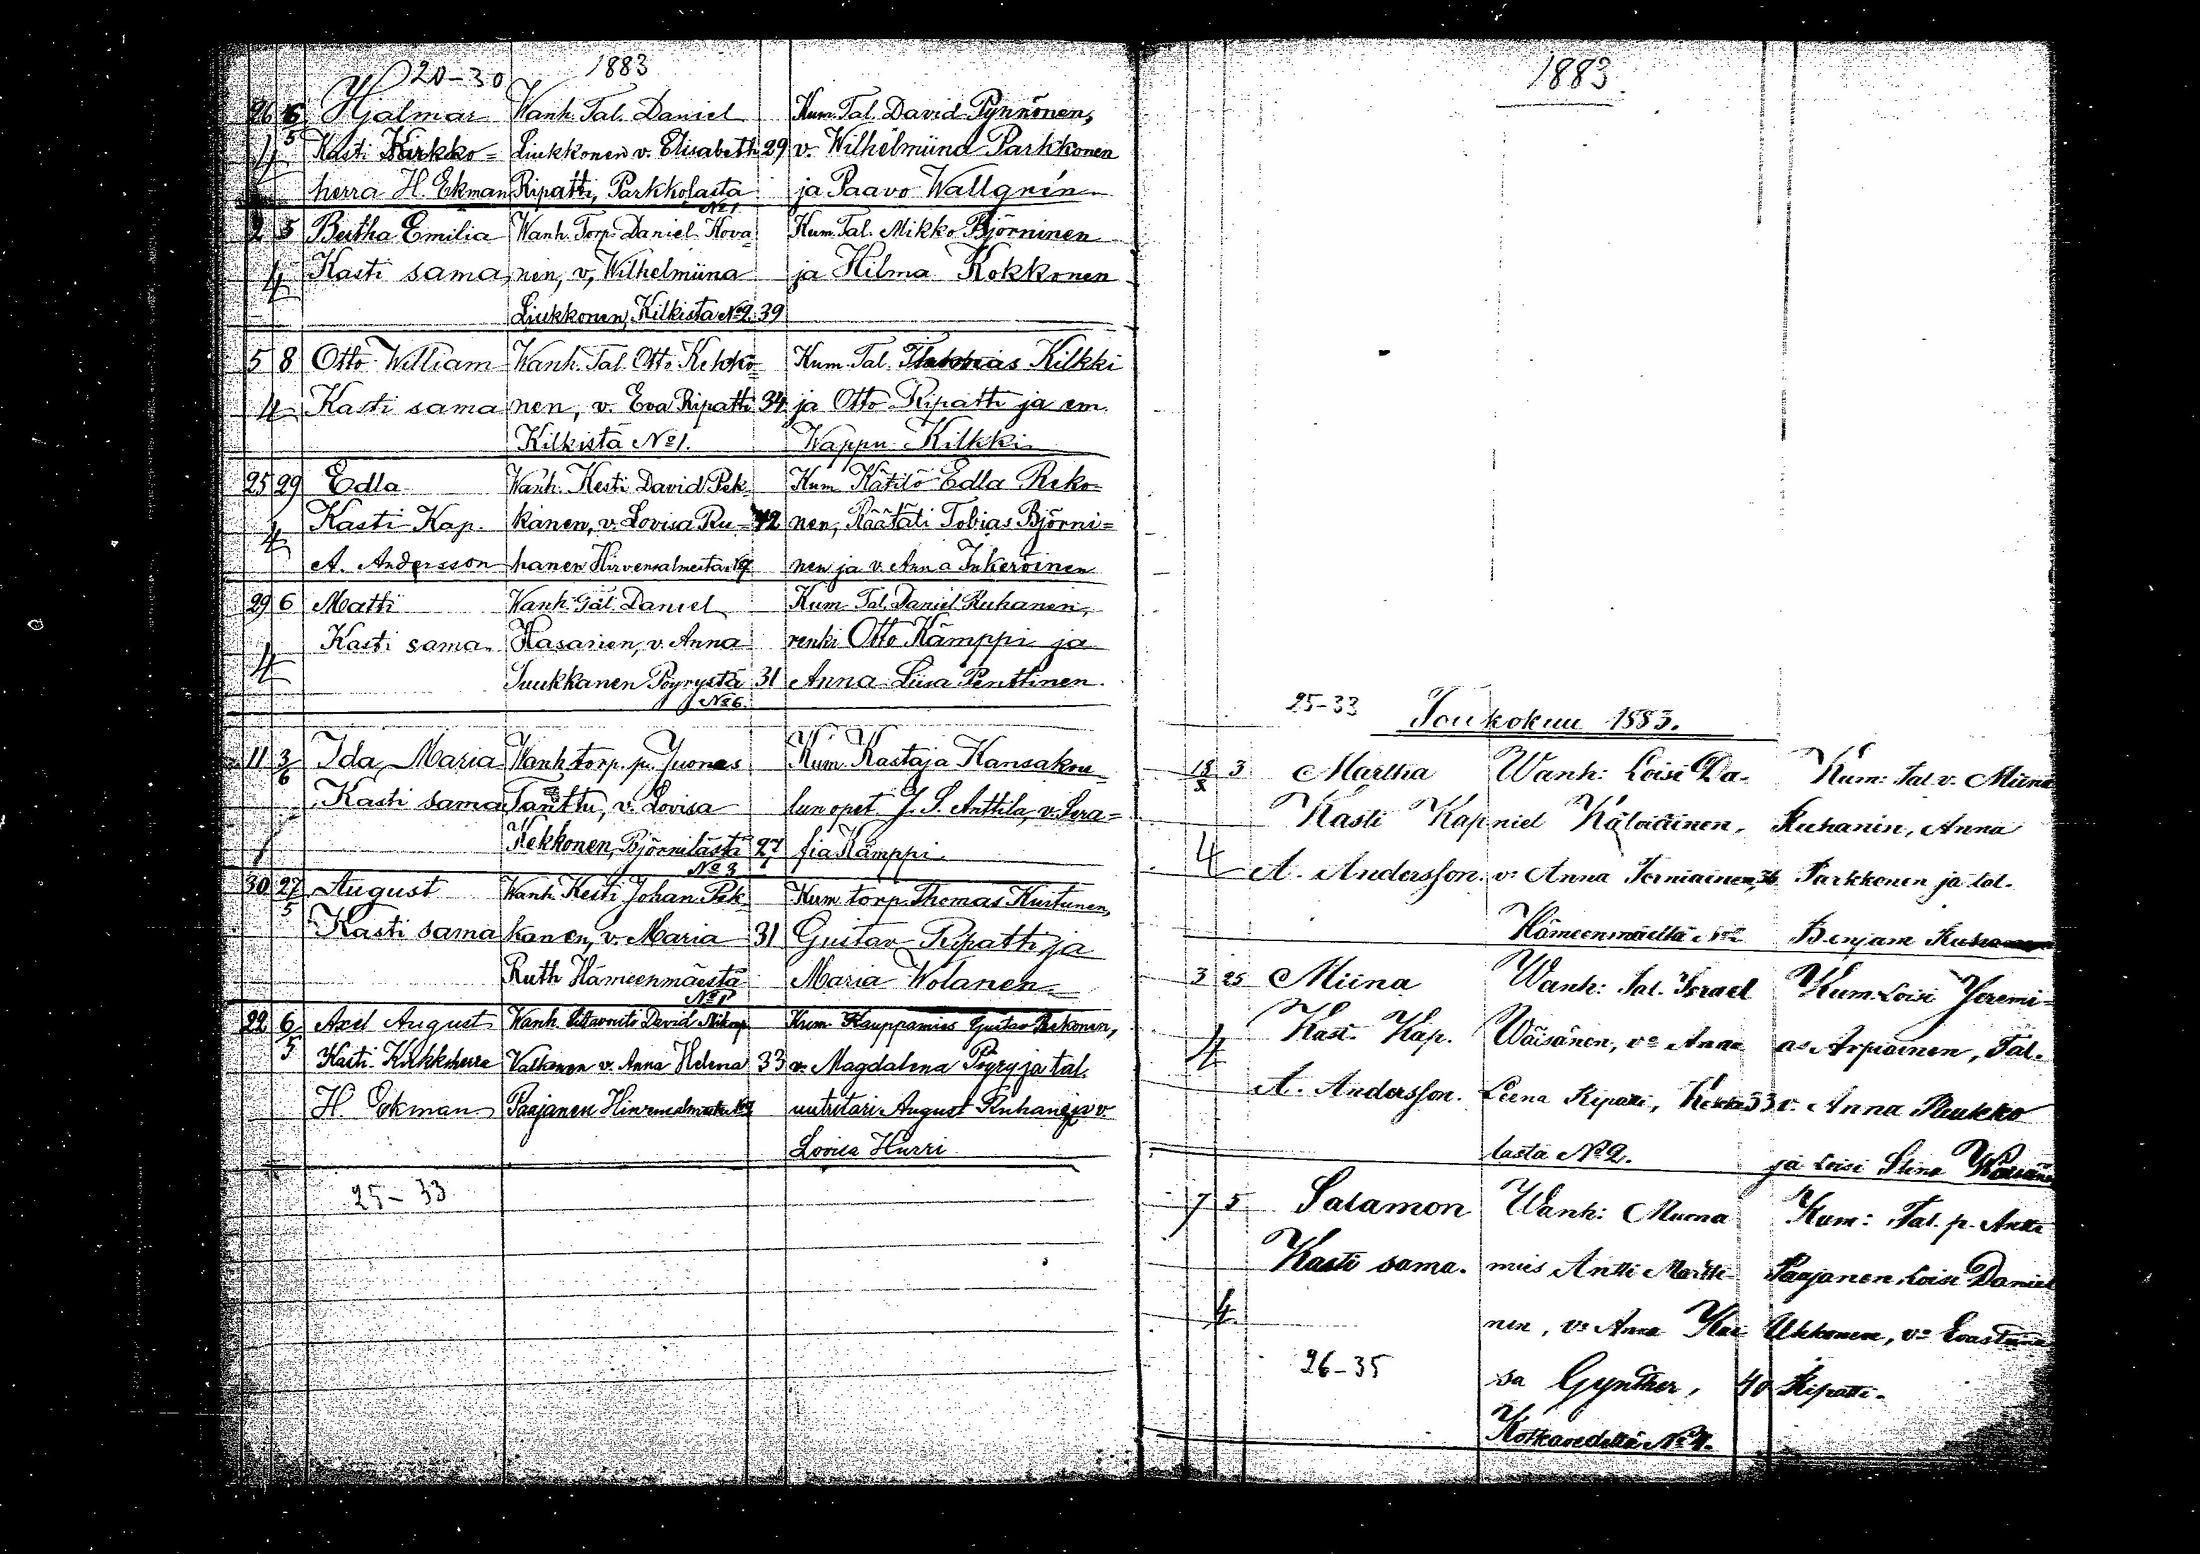 20-30 1883
26 6 Hjalmar Wanh. Tal. Daniel Kum. Tal. David Pynnönen,
4 5 Kasti Kirkko= Liukkonen v. Elisabeth 29 v. Wilhelmiina Parkkonen
herra H. Ekman Ripatti, Parkkolasta ja Paavo Wallgrén
No 1
2 5 Bertha Emilia Wanh. Torp. Daniel Kova- Kum. Tal. Mikko Björninen
4 Kasti sama nen, v. Wilhelmiina ja Hilma Kokkonen
Liukkonen, Kilkistä No 2. 39
5 8 Otto William Wanh. Tal. Otto Kekko= Kum. Tal. Kilkki
4 Kasti sama nen, v. Eva Ripatti 34 ja Otto Ripatti ja em.
Kilkistä No 1. Wappu Kilkki
25 29 Edla Wanh. Kesti David Pek- Kum. Kätilö Edla Reko-
4 Kasti Kap. kanen, v. Lovisa Ru- 42 nen, Räätäli Tobias Björni=
A. Andersson hanen Hirvensalmelta nen ja v. Anna Inkeroinen
29 6 Matti Wanh. Tal. Daniel Kum. Tal. Daniel Ruhanen,
Kasti sama Hasanen, v. Anna renki Otto Kämppi ja
4 Juukkanen Pöyrystä 31 Anna Liisa Penttinen.
No 6.
11 3/6 Ida Maria Wanh. torp. p. Juonas Kum. Kastaja Kansakou-
Kasti sama Tanttu, v. Lovisa lun opet. J. S. Anttila, v. Sera=
Kekkonen, Björnilästä 27 fia Kämppi
No 3
30 27/5 August Wanh. Kesti Johan Pek- Kum. torp. Thomas Kuitunen,
Kasti sama kanen, v. Maria 31 Gustav Ripatti ja
Ruth Hämeenmäestä Maria Wolanen
No 1
22 6/5 Axel August Wanh. David Kum. Kauppamies Gustav Rekonen,
Kasti Kirkkoherra Valkonen v. Anna Helena 33 v. Magdalena Pöyry ja tal.
H. Ekman Paajanen Hirvensalmelta uutritari August Ruhanen ja v.
Lovisa Hurri
25-33
1883.
25-33 Toukokuu 1883.
18 3 Martha Wanh: Loisi Da- Kum: Tal. v. Miina
Kasti Kap niel Käloiainen, Ruhanin, Anna
4 A. Andersson. v: Anna Torniainen, 36 Parkkonen ja tal.
Hämeenmäeltä Benjam
3 25 Miina Wanh: Tal. Israel Kum: Loisi Jeremi-
4 Kast. Kap. Wäisänen, v: Anna as Arpiainen, Tal.
A. Andersson. Leena Ripatti, Kekko 33 v. Anna Reukko
lasta No 2. ja Loisi Stina
7 5 Salamon Wanh: Murna Kum: Tal. p. Antti
Kasti sama. mies Antti Martti- Paajanen, Loisi Daniel
4 nen, v: Anna Kai Ukkonen, v:
26-35 sa Gynther, 40 Ripatti.